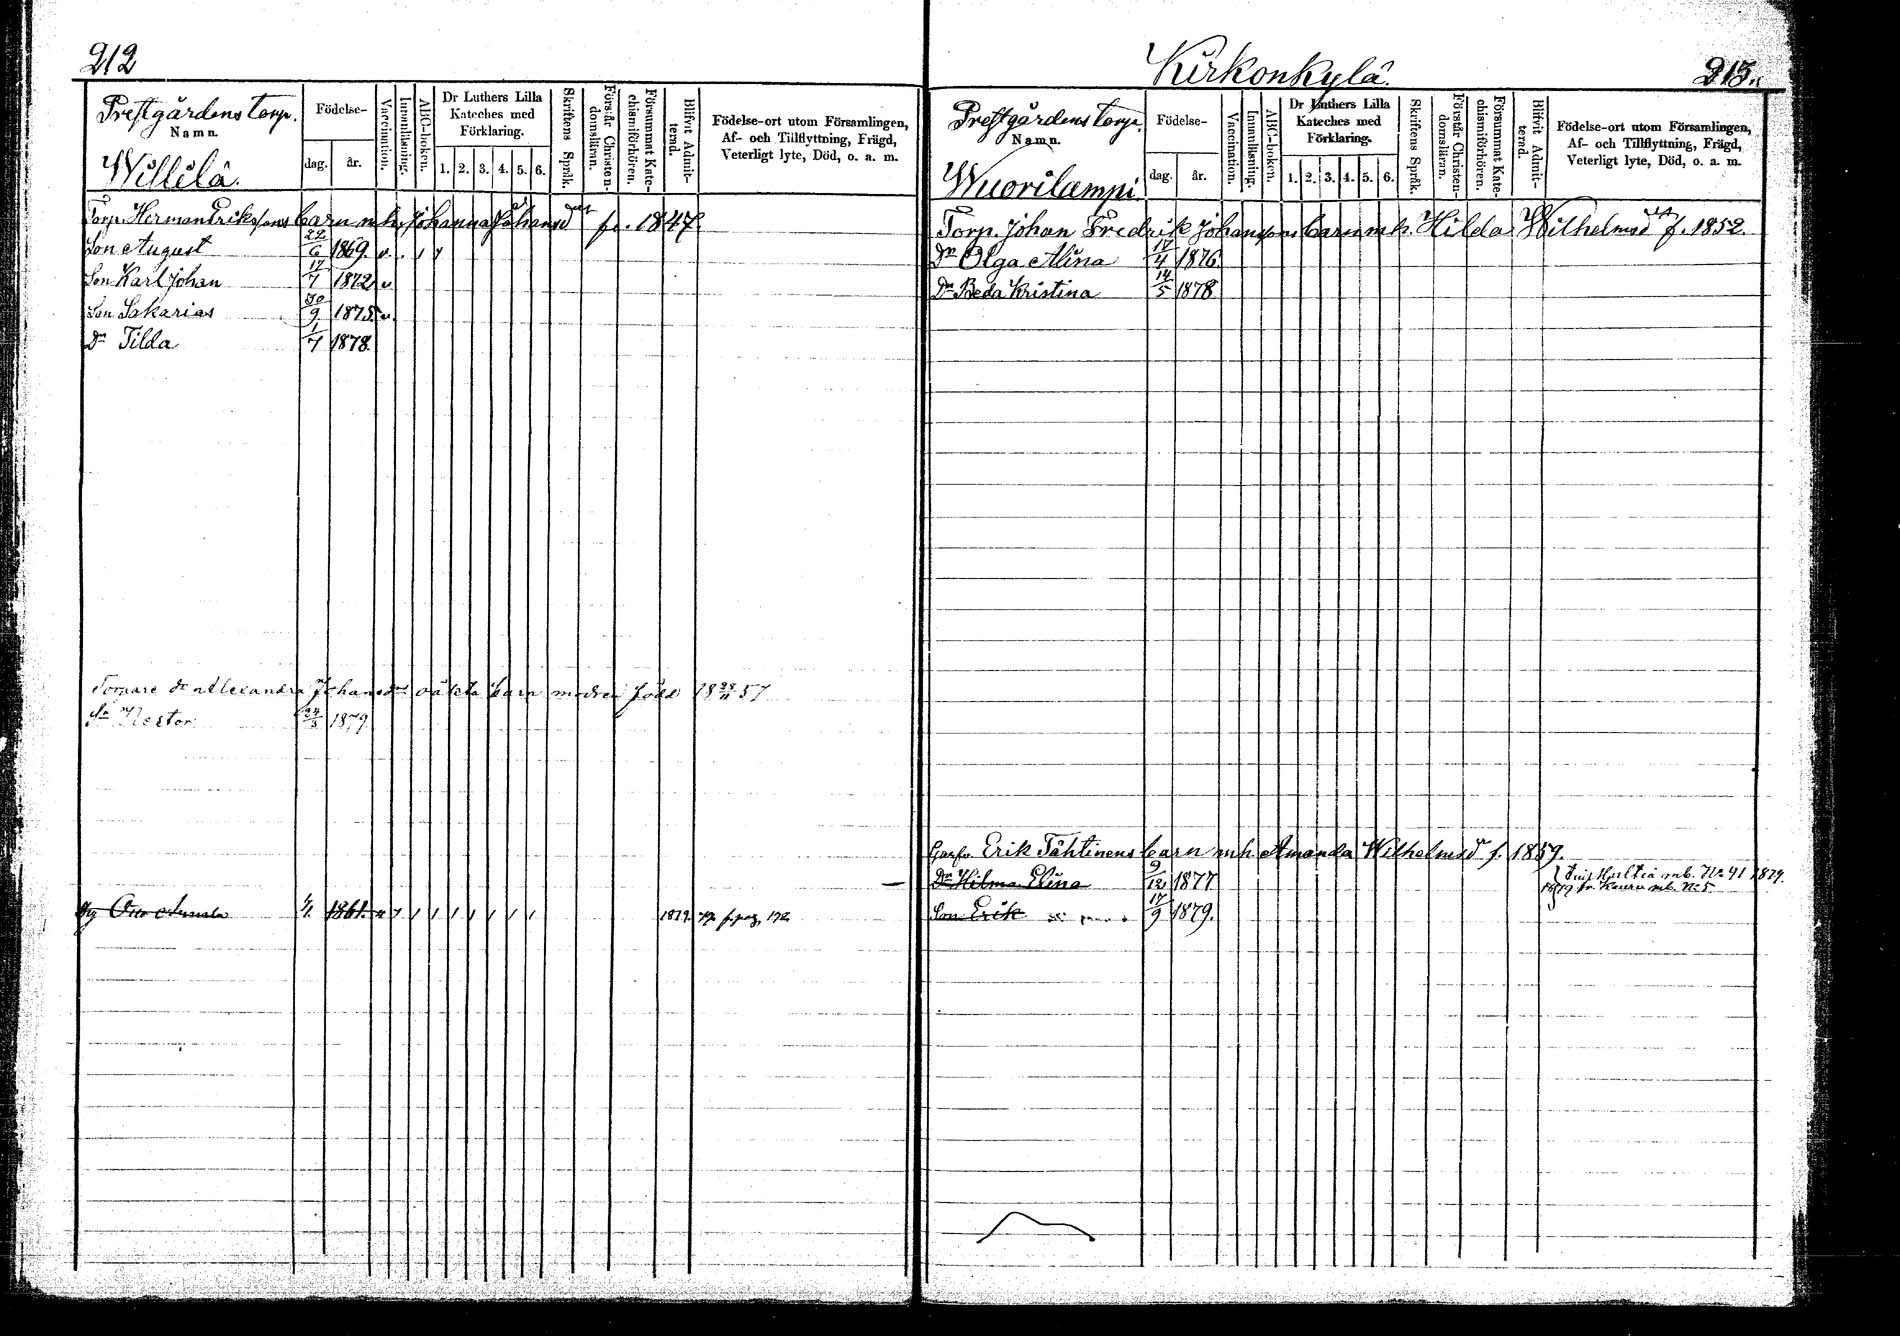 212
Prestgårdens torp.
Namn.
Willilä.
Födelse-
dag. år.
Vaccination.
Innanläsning.
ABC-boken.
Dr Luthers Lilla
Kateches med
Förklaring.
1. 2. 3. 4. 5. 6.
Skriftens Språk.
Förstår Christen-
domsläran.
Försummat Kate-
chismiförhören.
Blifvit Admit-
terad.
Födelse-ort utom Församlingen,
Af- och Tillflyttning, Frägd,
Veterligt lyte, Död, o. a. m.
Torp. Herman Erikssons barn m. h. Johanna Johansdr f. 1847
Son August 22/6 1869. v. . 1
Son Karl Johan 17/7 1872 v
Son Sakarias 30/9 1875 v.
Dr Tilda 1/7 1878.
Alexandra Johansdr oäkta barn modren född 18 57
Sn Nestor 24/3 1879.
1861. v 1 1 1 1 1 1 1 1 1879. pag. 172
Kirkonkylä.
213.
Prestgårdens torp.
Namn.
Wuorilampi.
Födelse-
dag. år.
Vaccination.
Innanläsning.
ABC-boken.
Dr Luthers Lilla
Kateches med
Förklaring.
1. 2. 3. 4. 5. 6.
Skriftens Språk.
Förstår Christen-
domsläran.
Försummat Kate-
chismiförhören.
Blifvit Admit-
terad.
Födelse-ort utom Församlingen,
Af- och Tillflyttning, Frägd,
Veterligt lyte, Död, o. a. m.
Torp. Johan Fredrik Johanssons barn m. h. Hilda Wilhelmsdr f. 1852.
Dr Olga Alina 17/4 1876.
Dr Beda Kristina 14/5 1878
Erik Tähtinens barn m. h. Amanda Wilhelmsdr f. 1859.
Dr Hilma Elina 9/12 1877
mb. No 41 1879.
1879 fr. mb. No 5
Son Erik 17/9 1879.